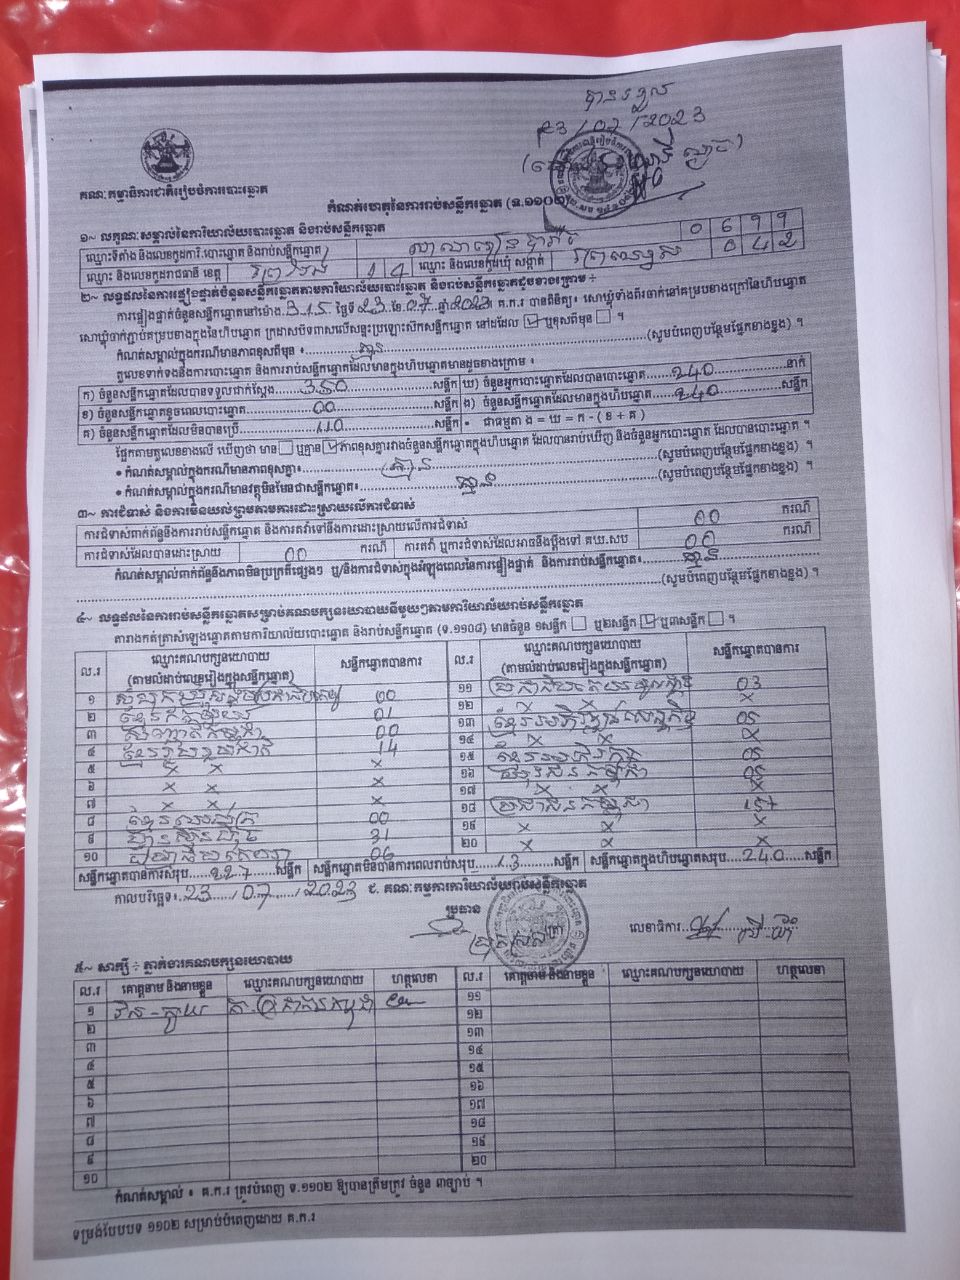 បានទទួល
23 / 07 / 2023
គណៈកម្មាធិការជាតិរៀបចំការបោះឆ្នោត
កំណត់ហេតុនៃការរាប់សន្លឹកឆ្នោត (ទ.១១០២)
១~ លក្ខណៈសម្គាល់នៃការិយាល័យបោះឆ្នោត និងរាប់សន្លឹកឆ្នោត
ឈ្មោះទីតាំង និងលេខកូដការិ.បោះឆ្នោត និងរាប់សន្លឹកឆ្នោត 0 6 9 9
ឈ្មោះ និងលេខកូដរាជធានី ខេត្ត ព្រៃវែង 1 4 ឈ្មោះ និងលេខកូដឃុំ សង្កាត់ 0 4 2
២~ លទ្ធផលនៃការផ្ទៀងផ្ទាត់ចំនួនសន្លឹកឆ្នោតតាមការិយាល័យបោះឆ្នោត និងរាប់សន្លឹកឆ្នោតដូចខាងក្រោម ÷
ការផ្ទៀងផ្ទាត់ចំនួនសន្លឹកឆ្នោតនៅម៉ោង 3:15 ថ្ងៃទី 23 ខែ 07 ឆ្នាំ 2023 គ.ក.រ បានពិនិត្យ៖ សោឃ្លុំទាំងពីរចាក់នៅគម្របខាងក្រៅនៃហិបឆ្នោត
សោឃ្លុំចាក់ភ្ជាប់គម្របខាងក្នុងនៃហិបឆ្នោត ក្រដាសបិទពាសលើសន្ទះប្រឡោះសឹកសន្លឹកឆ្នោត នៅដដែល ☑ ឬខុសពីមុន ☐ ។
កំណត់សម្គាល់ក្នុងករណីមានភាពខុសពីមុន ៖ គ្មាន (សូមបំពេញបន្ថែមផ្នែកខាងខ្នង) ។
តួលេខទាក់ទងនឹងការបោះឆ្នោត និងការរាប់សន្លឹកឆ្នោតដែលមានក្នុងហិបឆ្នោតមានដូចខាងក្រោម ៖
ក) ចំនួនសន្លឹកឆ្នោតដែលបានទទួលជាក់ស្តែង 350 សន្លឹក ឃ) ចំនួនអ្នកបោះឆ្នោតដែលបានបោះឆ្នោត 240 នាក់
ខ) ចំនួនសន្លឹកឆ្នោតខូចពេលបោះឆ្នោត 00 សន្លឹក ង) ចំនួនសន្លឹកឆ្នោតដែលមានក្នុងហិបឆ្នោត 240 សន្លឹក
គ) ចំនួនសន្លឹកឆ្នោតដែលមិនបានប្រើ 110 សន្លឹក • ជាធម្មតា ង = ឃ = ក - ( ខ + គ )
ផ្អែកតាមតួលេខខាងលើ ឃើញថា មាន ☐ ឬគ្មាន ☑ ភាពខុសគ្នារវាងចំនួនសន្លឹកឆ្នោតក្នុងហិបឆ្នោត ដែលបានរាប់ឃើញ និងចំនួនអ្នកបោះឆ្នោត ដែលបានបោះឆ្នោត ។
• កំណត់សម្គាល់ក្នុងករណីមានភាពខុសគ្នា៖ គ្មាន (សូមបំពេញបន្ថែមផ្នែកខាងខ្នង) ។
• កំណត់សម្គាល់ក្នុងករណីមានវត្ថុមិនមែនជាសន្លឹកឆ្នោត៖ គ្មាន (សូមបំពេញបន្ថែមផ្នែកខាងខ្នង) ។
៣~ ការជំទាស់ និងការមិនយល់ព្រមតាមការដោះស្រាយលើការជំទាស់
ការជំទាស់ពាក់ព័ន្ធនឹងការរាប់សន្លឹកឆ្នោត និងការតវ៉ាទៅនឹងការដោះស្រាយលើការជំទាស់ 00 ករណី
ការជំទាស់ដែលបានដោះស្រាយ 00 ករណី ការតវ៉ា ឬការជំទាស់ដែលអាចនឹងប្តឹងទៅ គឃ.សប 00 ករណី
កំណត់សម្គាល់ពាក់ព័ន្ធនឹងភាពមិនប្រក្រតីផ្សេងៗ ឬ/និងការជំទាស់ក្នុងអំឡុងពេលនៃការផ្ទៀងផ្ទាត់ និងការរាប់សន្លឹកឆ្នោត៖ គ្មាន
(សូមបំពេញបន្ថែមផ្នែកខាងខ្នង) ។
៤~ លទ្ធផលនៃការរាប់សន្លឹកឆ្នោតសម្រាប់គណបក្សនយោបាយនីមួយៗតាមការិយាល័យរាប់សន្លឹកឆ្នោត
តារាងកត់ត្រាសំឡេងឆ្នោតតាមការិយាល័យបោះឆ្នោត និងរាប់សន្លឹកឆ្នោត (ទ.១១០៨) មានចំនួន ១សន្លឹក ☐ ឬ២សន្លឹក ☑ ឬ៣សន្លឹក ☐ ។
ល.រ ឈ្មោះគណបក្សនយោបាយ (តាមលំដាប់លេខរៀងក្នុងសន្លឹកឆ្នោត) សន្លឹកឆ្នោតបានការ ល.រ ឈ្មោះគណបក្សនយោបាយ (តាមលំដាប់លេខរៀងក្នុងសន្លឹកឆ្នោត) សន្លឹកឆ្នោតបានការ
១ សំបុកឃ្មុំសង្គមប្រជាធិបតេយ្យ 00 ១១ 03
២ 01 ១២ x x x
៣ 00 ១៣ 05
៤ ខ្មែររួបរួមជាតិ 14 ១៤ x x x
៥ x x x ១៥ 05
៦ x x x ១៦ 05
៧ x x x ១៧ x x x
៨ 00 ១៨ ប្រជាជនកម្ពុជា 157
៩ 31 ១៩ x x x
១០ 06 ២០ x x x
សន្លឹកឆ្នោតបានការសរុប 227 សន្លឹក សន្លឹកឆ្នោតមិនបានការពេលរាប់សរុប 13 សន្លឹក សន្លឹកឆ្នោតក្នុងហិបឆ្នោតសរុប 240 សន្លឹក
កាលបរិច្ឆេទ៖ 23 / 07 / 2023 ជ. គណៈកម្មការការិយាល័យរាប់សន្លឹកឆ្នោត
ប្រធាន
លេខាធិការ
៥~ សាក្សី ÷ ភ្នាក់ងារគណបក្សនយោបាយ
ល.រ គោត្តនាម និងនាមខ្លួន ឈ្មោះគណបក្សនយោបាយ ហត្ថលេខា ល.រ គោត្តនាម និងនាមខ្លួន ឈ្មោះគណបក្សនយោបាយ ហត្ថលេខា
១ គ.ប្រជាជនកម្ពុជា ១១
២ ១២
៣ ១៣
៤ ១៤
៥ ១៥
៦ ១៦
៧ ១៧
៨ ១៨
៩ ១៩
១០ ២០
កំណត់សម្គាល់ ៖ គ.ក.រ ត្រូវបំពេញ ទ.១១០២ ឱ្យបានត្រឹមត្រូវ ចំនួន ៣ច្បាប់ ។
ទម្រង់បែបបទ ១១០២ សម្រាប់បំពេញដោយ គ.ក.រ